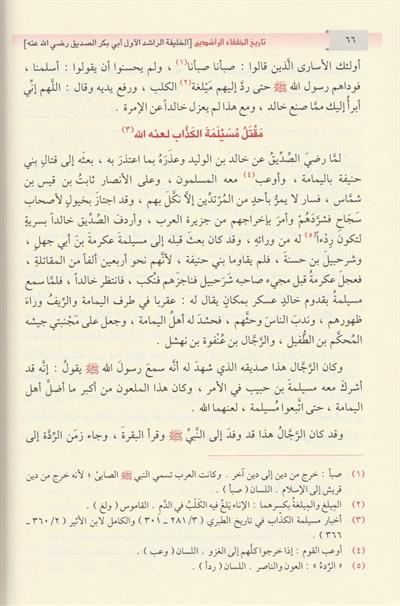 ٦٦ تاريخ الخلفاء الراشدين [الخليفة الراشد الأول أبي بكر الصديق رضي الله عنه]
أولئك الأسارى الَّذين قالوا : صبأنا صبأنا(١) ، ولم يحسنوا أن يقولوا : أسلمنا ،
فوداهم رسول الله ﷺ حتى ردَّ إليهم مِيْلَغة(٢) الكلب ، ورفع يديه وقال : اللَّهم إنِّي
أبرأ إليك ممَّا صنع خالد ، ومع هذا لم يعزل خالداً عن الإمرة .
مَقْتَلُ مُسَيْلِمَةَ الكَذَّابِ لعنه الله(٣)
لمَّا رضيَ الصِّدِّيق عن خالد بن الوليد وعذرَهُ بما اعتذرَ به ، بعثه إلى قتال بني
حنيفة باليمامة ، وأوعب(٤) معه المسلمون ، وعلى الأنصار ثابتُ بن قيس بن
شمَّاس ، فسار لا يمرُّ بأحدٍ من المرْتدِّين إلَّا نكَّل بهم ، وقد اجتازَ بخيولٍ لأصحاب
سَجَاحِ فشرَّدَهُمْ وأمرَ بإخراجهم من جزيرة العرب ، وأردفَ الصِّدِّيق خالداً بسريةٍ
لتكون رِدْءاً(٥) له من ورائهِ ، وقد كان بعثَ قبله إلى مسيلمة عكرمةَ بنَ أبي جهلٍ ،
وشرحبيلَ بن حسنةَ ، فلم يقاوما بني حنيفة ، لأنَّهم نحو أربعين ألفاً من المقاتلة ،
فعجل عكرمةُ قبل مجيء صاحبه شُرَحبيل فناجزهم فنُكب ، فانتظر خالداً ، فلمَّا سمع
مسيلمةُ بقدومِ خالدٍ عسكر بمكانٍ يقال له : عقربا في طرف اليمامة والرِّيفُ وراءَ
ظهورهم ، وندبَ الناسَ وحثَّهم ، فحشدَ له أهلُ اليمامة ، وجعل على مجْنبتي جيشه
المُحكَّم بن الطُّفيل ، والرَّجَّال بن عُنفُوة بن نهشل .
وكان الرَّجَّالُ هذا صديقه الذي شهدَ له أنَّه سمعَ رسول الله ﷺ يقولُ : إنَّه قد
أشركَ معه مسيلمةَ بن حبيب في الأمر ، وكان هذا الملعون من أكبر ما أضل أهل
اليمامة ، حتى اتَّبعوا مُسيلمة ، لعنهما الله .
وقد كان الرَّجَّالُ هذا قد وفدَ إلى النَّبيِّ ﷺ وقرأ البقرةَ ، وجاء زمَن الرِّدة إلى
(١) صبأ : خرج من دين إلى دين آخر . وكانت العرب تسمي النبي ﷺ الصابئ ؛ لأنه خرج من دين
قريش إلى الإسلام . اللسان ( صبأ ) .
(٢) المِيلغ والمِيلغة بكسرهما : الإناء يَلغُ فيه الكَلْبُ في الدَّمِ . القاموس ( ولغ ) .
(٣) أخبار مسيلمة الكذاب في تاريخ الطبري (٢٨١/٣ ــ ٣٠١) والكامل لابن الأثير (٣٦٠/٢ ــ
٣٦٦) .
(٤) أوعب القوم : إذا خرجوا كلُّهم إلى الغزو . اللسان ( وعب ) .
(٥) « الرِّدْءُ » : العون والناصر . اللسان ( ردأ ) .